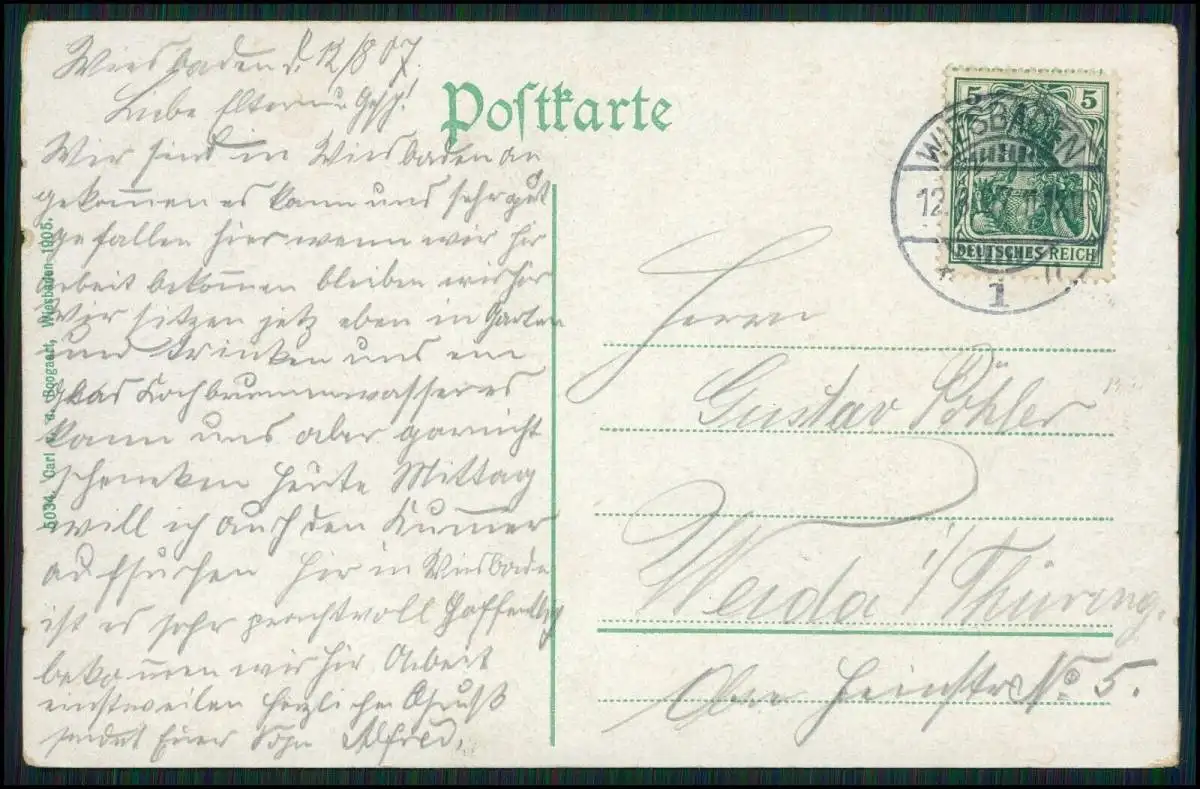 Wiesbaden d. 12/8 07.
Liebe Eltern u Gesch!
Wir sind in Wiesbaden an
gekommen es kann uns sehr gut
gefallen hier wenn wir hir
arbeit bekommen bleiben wir hir
Wir sitzen jetz eben in Garten
und trinken uns ein
Glas Kochbrunnenwasser es
kann uns aber garnicht
schmeken heute Mittag
will ich auch den Kummer
aufsuchen hir in Wiesbaden
ist es sehr prachtvoll Hoffentlich
bekommen wir hir Arbeit
einstweilen herzlichen Gruß
sendet Euer Sohn Alfred.
5034. Carl v. d. Boogaart, Wiesbaden 1905.
Postkarte
5 5
DEUTSCHES REICH
WIESBADEN
12.8.
1
Herrn
Gustav Pöhler
Weida i/Thüring.
Obere No 5.